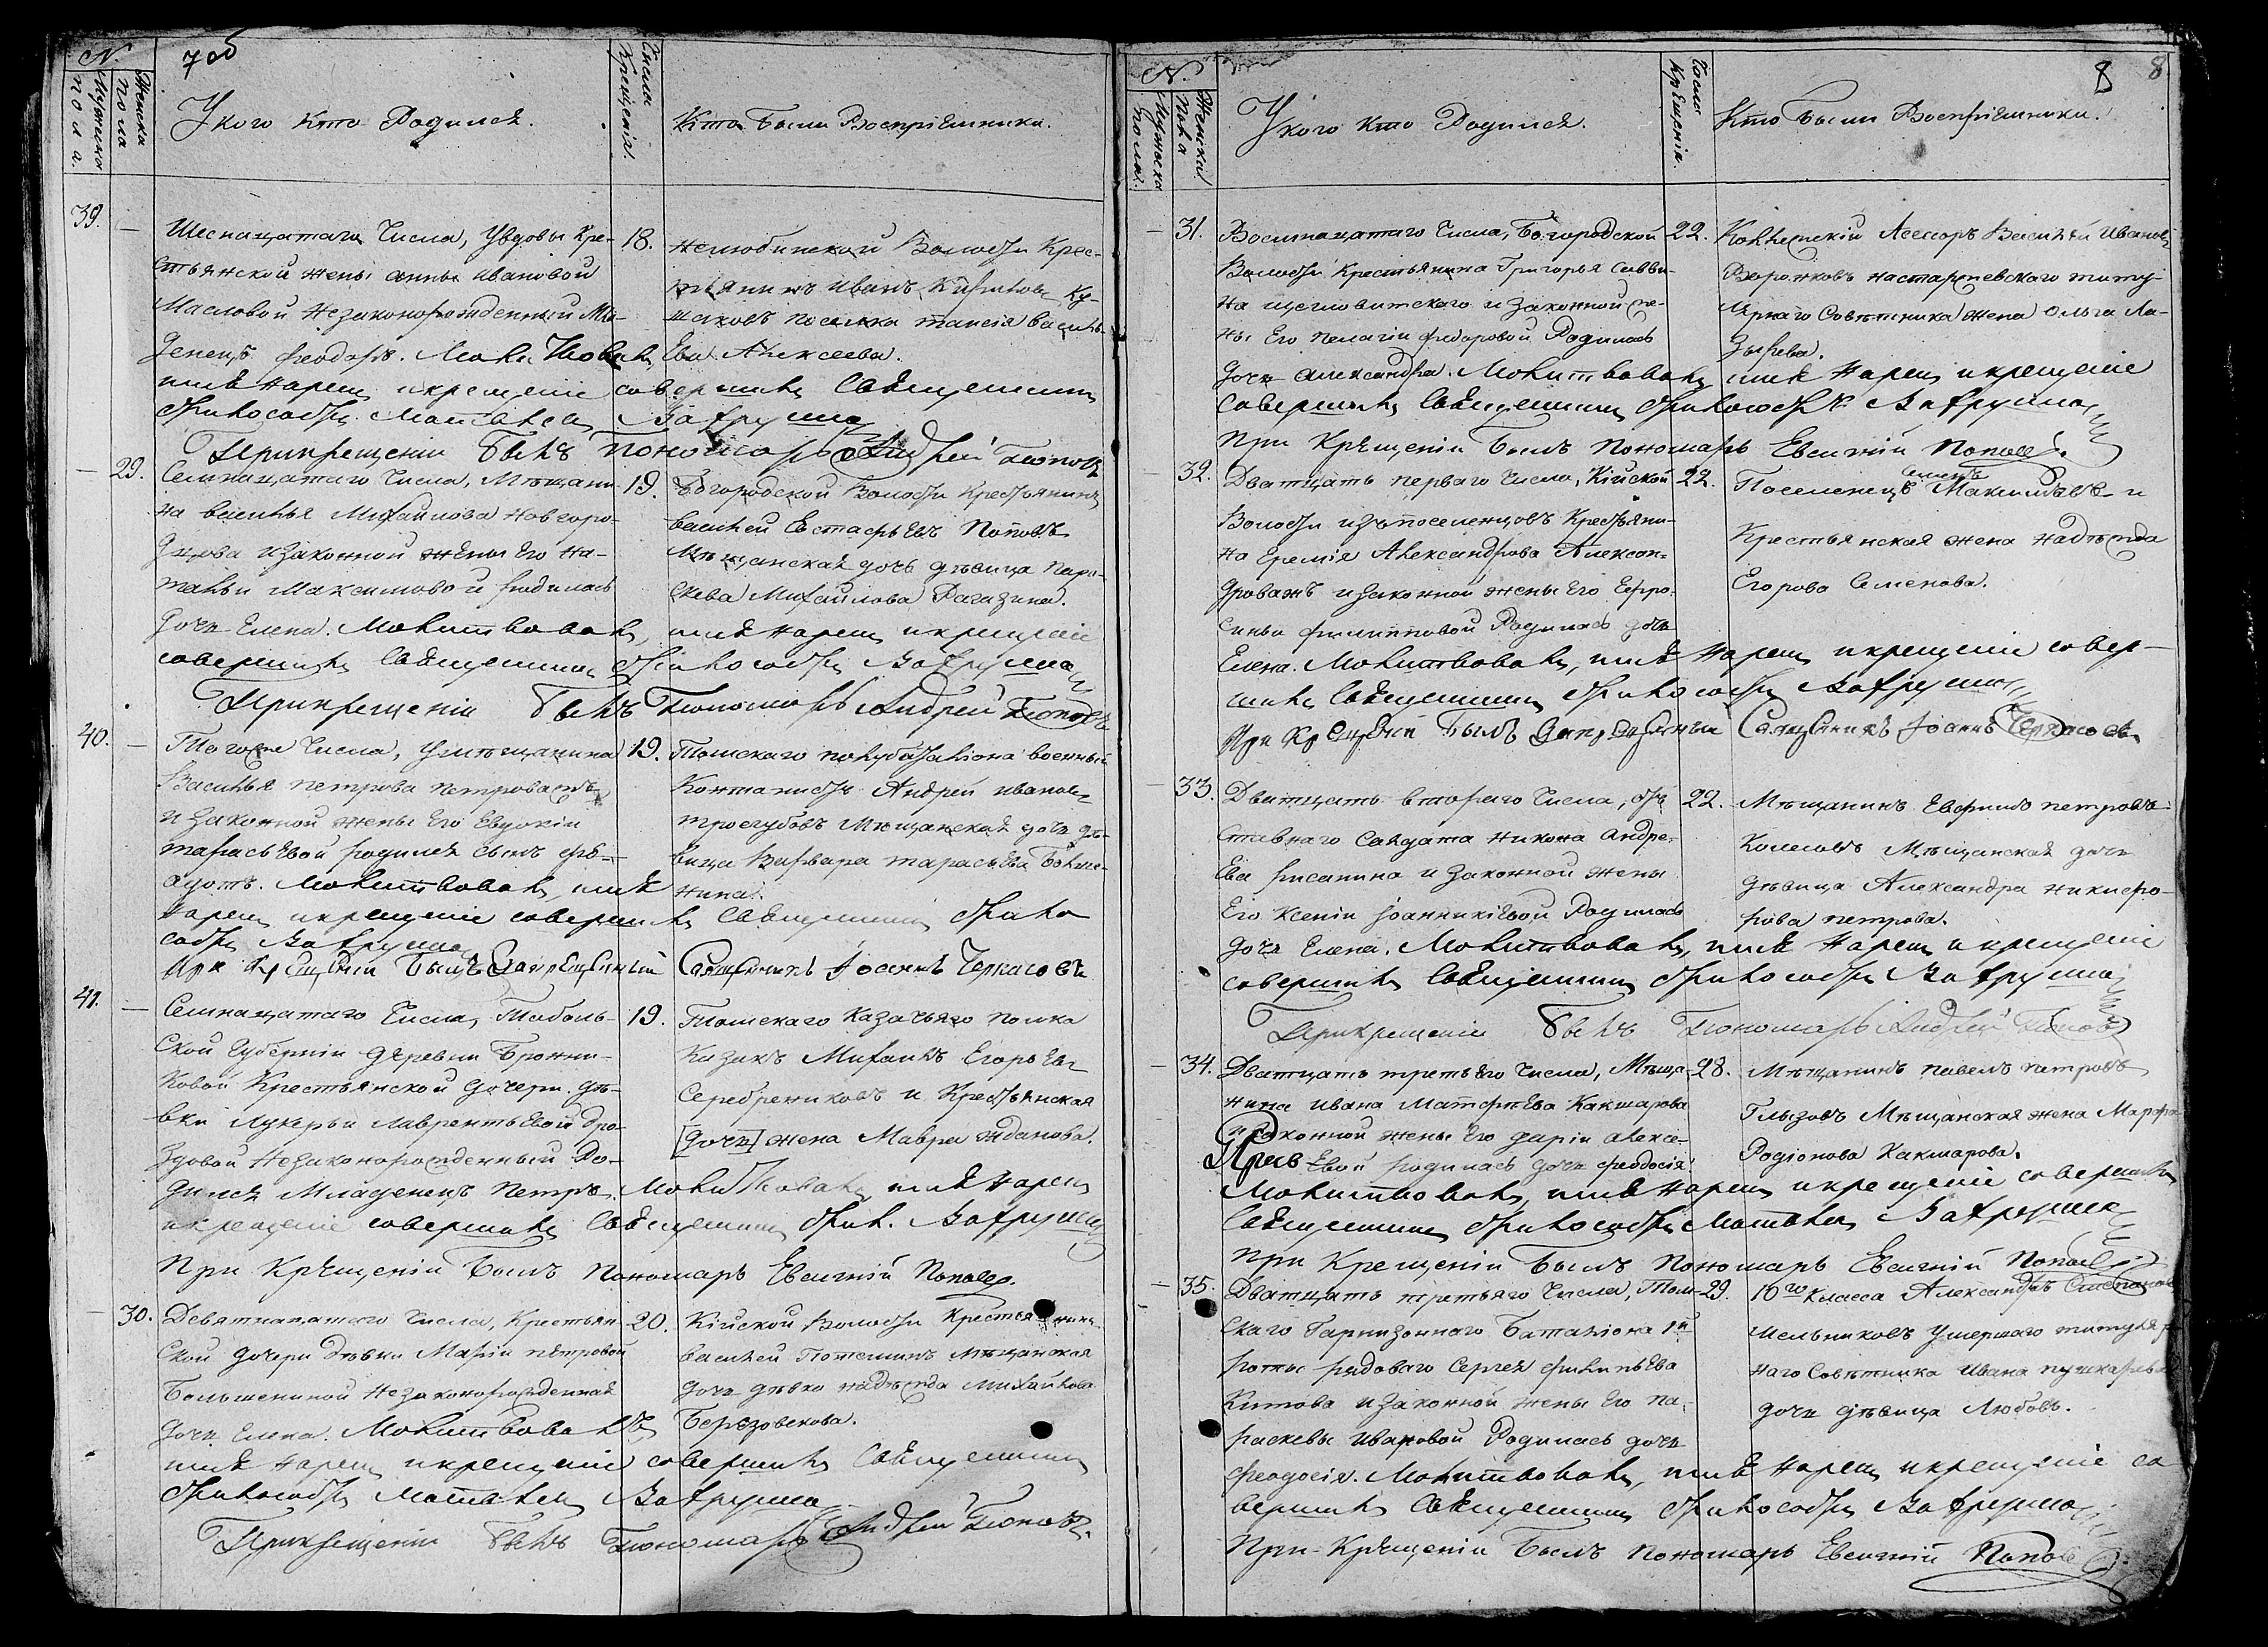 7 об
N.
Мужеска пола.
Женска пола
У кого кто Родился.
Числа Крещенія.
Кто были Воспріемники.
39. — Шеснацатаго Числа, У вдовы Кре-
стьянской жены анны ивановой
Масловой Незаконорожденный Мла-
денецъ феодоръ. Молитвовалъ,
имя нарекъ и крещеніе совершилъ Священникъ
Матвей Вавруша
18. Нелюбинской Волости Крес-
тьянинъ иванъ
Алексеева.
При крещеніи былъ пономарь Андрей Поповъ
— 29. Семнацатаго Числа, Мещани-
на василья Михайлова
и законной жены Его На-
тальи Максимовой родилась
Дочь Елена. Молитвовалъ, имя нарекъ и крещеніе
совершилъ Священникъ Вавруша
19. Богородской Волости Крестьянинъ
василей Евстафьевъ Поповъ
Мещанская дочь девица Пара-
скева Михайлова
При крещеніи былъ Пономарь Андрей Поповъ
40. — Того же Числа, У мещанина
Василья петрова
и законной жены Его Евдокіи
тарасьевой родился сынъ
Молитвовалъ, имя
нарекъ и крещеніе совершилъ Священникъ
Вавруша
19. Томскаго военный
Андрей иванов
Мещанская дочь де-
вица Варвара тарасьева
При Крещеніи былъ Священникъ Іоаннъ Черкасовъ
41. — Семнацатаго Числа, Тоболь-
ской Губерніи деревни Бронни-
ковой Крестьянской дочери де-
вки лукерьи лаврентьевой Дро-
здовой Незаконорожденный Ро-
дился Младенецъ Петръ. Молитвовалъ, имя нарекъ
и крещеніе совершилъ Священникъ Вавруша
19. Томскаго Казачьяго полка
Казакъ Михаилъ Егорьев
Серебрениковъ и Крестьянская
[дочь] жена Мавра Жданова.
При Крещеніи былъ Пономарь Евгеній Поповъ.
— 30. Девятнацатаго Числа, Крестьян-
ской дочери девки Маріи петровой
Незаконорожденная
дочь Елена. Молитвовалъ,
имя нарекъ и крещеніе совершилъ Священникъ
Матвей Вавруша
20. Кійской Волости Крестьянинъ
василей Потешинъ Мещанская
дочь девка надежда Михайлова
Березовскова.
При крещеніи былъ Пономарь Андрей Поповъ.
8 8
N.
Мужеска пола.
Женска пола
У кого кто Родился.
Число Крещенія.
Кто были Воспріемники.
— 31. Восемнацатаго Числа, Богородской
Волости Крестьянина Григорья Савви-
на и законной же-
ны Его пелагіи федоровой Родилась
дочь александра. Молитвовалъ, имя нарекъ и крещеніе
совершилъ Священникъ Вавруша
22. Коллежскій Асессоръ Василій иванов
Титу-
лярнаго Советника жена ольга Ла-
зырева.
При Крещеніи былъ Пономарь Евгеній Поповъ.
— 32. Дватцать перваго Числа, Кійской
Волости изъ поселенцовъ Крестьяни-
на Еремія Александрова Алексан-
и законной жены Его Ефро-
синьи филипповой Родилась дочь
Елена. Молитвовалъ, имя нарекъ и крещеніе совер-
шилъ Священникъ Вавруша
22. Поселенецъ семенъ Максимовъ и
Крестьянская жена надежда
Егорова Семенова.
При Крещеніи былъ Священникъ Іоаннъ Черкасовъ
— 33. Дватцать втораго Числа, От-
ставнаго Салдата Никона андре-
ева и законной жены
Его Ксеніи Іоанникіевой Родилась
дочь Елена. Молитвовалъ, имя нарекъ и крещеніе
совершилъ Священникъ Вавруша
22. Мещанинъ Евфимъ петровъ
Мещанская дочь
девица Александра никифо-
рова петрова.
При крещеніи былъ Пономарь Андрей Поповъ
— 34. Дватцать третьего Числа, Меща-
нина ивана Матфеева Какшарова
и законной жены Его даріи алексе-
евой родилась дочь феодосія
Молитвовалъ, имя нарекъ и крещеніе совершилъ
Священникъ Матвей Вавруша
28. Мещанинъ павелъ петровъ
Глызовъ Мещанская жена Марфа
Родіонова Какшарова.
При Крещеніи былъ Пономарь Евгеній Поповъ
— 35. Дватцать третьяго Числа, Том-
скаго Гарнизоннаго Баталіона 1й
роты рядоваго Сергея филипьева
Китова и законной жены Его Па-
раскевы ивановой Родилась дочь
феодосія. Молитвовалъ, имя нарекъ и крещеніе со-
вершилъ Священникъ Вавруша
29. 10го класса Александръ Степанов
Мельниковъ умершаго титуляр-
наго Советника ивана пушкарева
дочь девица Любовь.
При Крещеніи былъ Пономарь Евгеній Поповъ